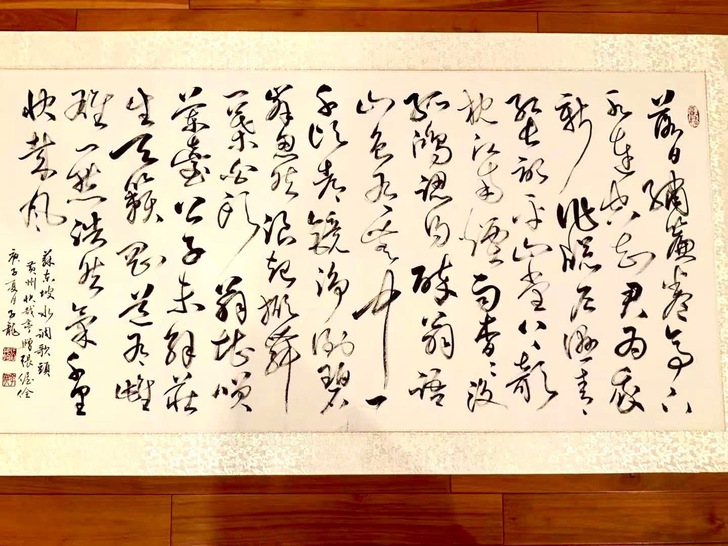 落日繡簾卷亭下
水連空知君為我
新作窗戶濕青
紅長記平山堂上敧
枕江南煙雨杳杳沒
孤鴻認得醉翁語
山色有無中一
千頃都鏡淨倒碧
峰忽然浪起掀舞
一葉白頭翁堪笑
蘭臺公子未解莊
生天籟剛道有雌
雄一點浩然氣千里
快哉風
蘇東坡水調歌頭
黃州快哉亭贈張偓佺
庚子夏月